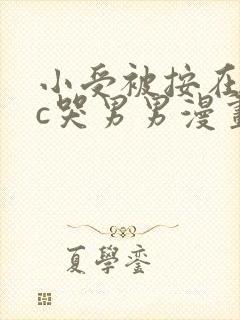 小受被按在
c哭男男漫畫
夏學銮